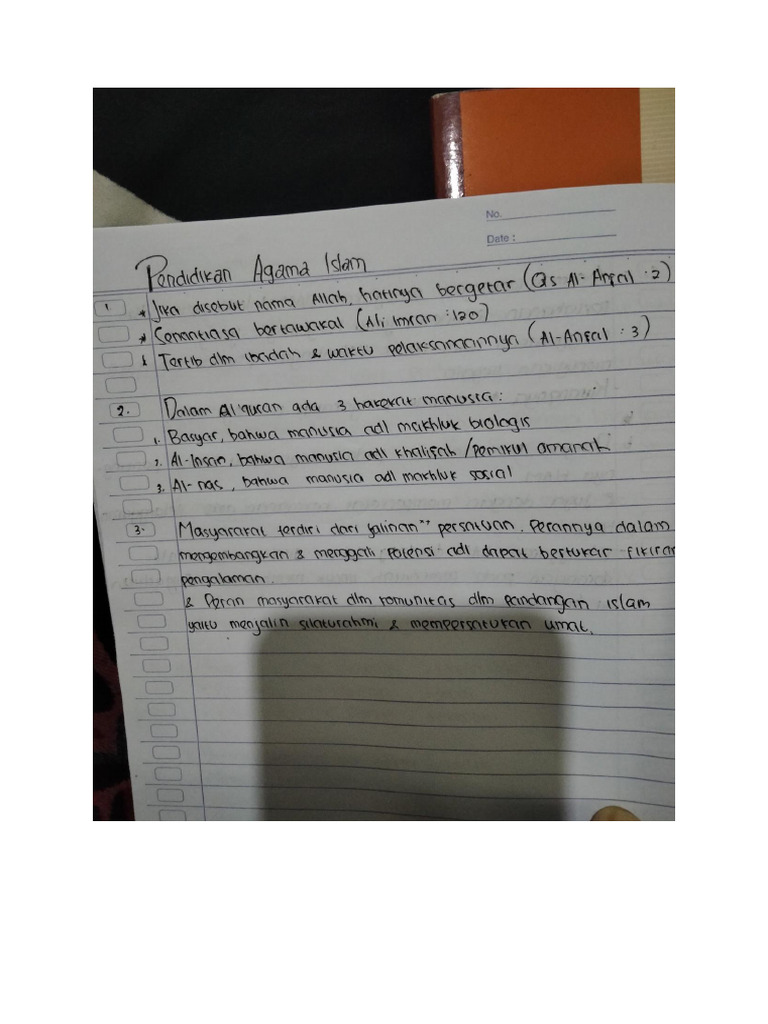 No.
Date :
Pendidikan Agama Islam
1 * Jika disebut nama Allah, hatinya bergetar (Qs Al-Anfal : 2)
* Senantiasa bertawakal (Ali Imran : 120)
* Tertib dlm ibadah & waktu pelaksanaannya (Al-Anfal : 3)
2. Dalam Al'quran ada 3 hakekat manusia :
1. Basyar, bahwa manusia adl makhluk biologis
2. Al-Insan, bahwa manusia adl khalifah / pemikul amanah
3. Al-nas, bahwa manusia adl makhluk sosial
3. Masyarakat terdiri dari jalinan" persatuan. Perannya dalam
mengembangkan & menggali potensi adl dapat bertukar fikiran
pengalaman.
& Peran masyarakat dlm komunitas dlm pandangan islam
yaitu menjalin silaturahmi & mempersatukan umat.